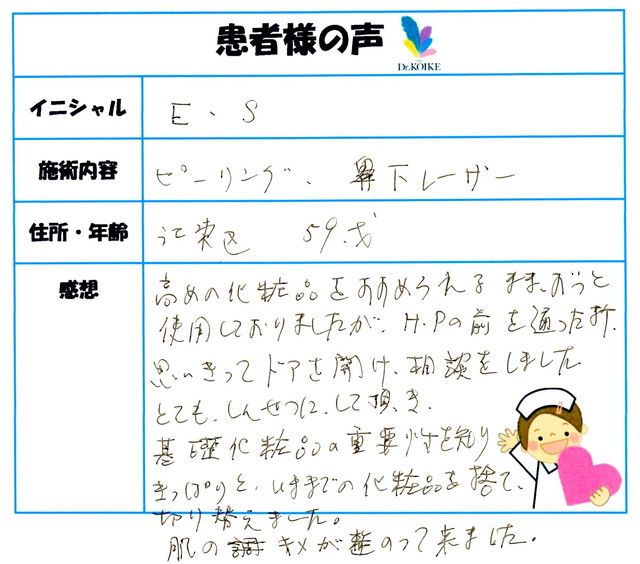 患者様の声
Dr.KOIKE
イニシャル E・S
施術内容 ピーリング、鼻下レーザー
住所・年齢 江東区 59才
感想
高めの化粧品をおすすめられるまま、ずっと
使用しておりましたが、H.Pの前を通った折、
思いきってドアを開け、相談をしました
とても、しんせつに、して頂き、
基礎化粧品の重要性を知り
きっぱりと、いままでの化粧品を捨て、
切り替えました。
肌のキメが整のって来ました。